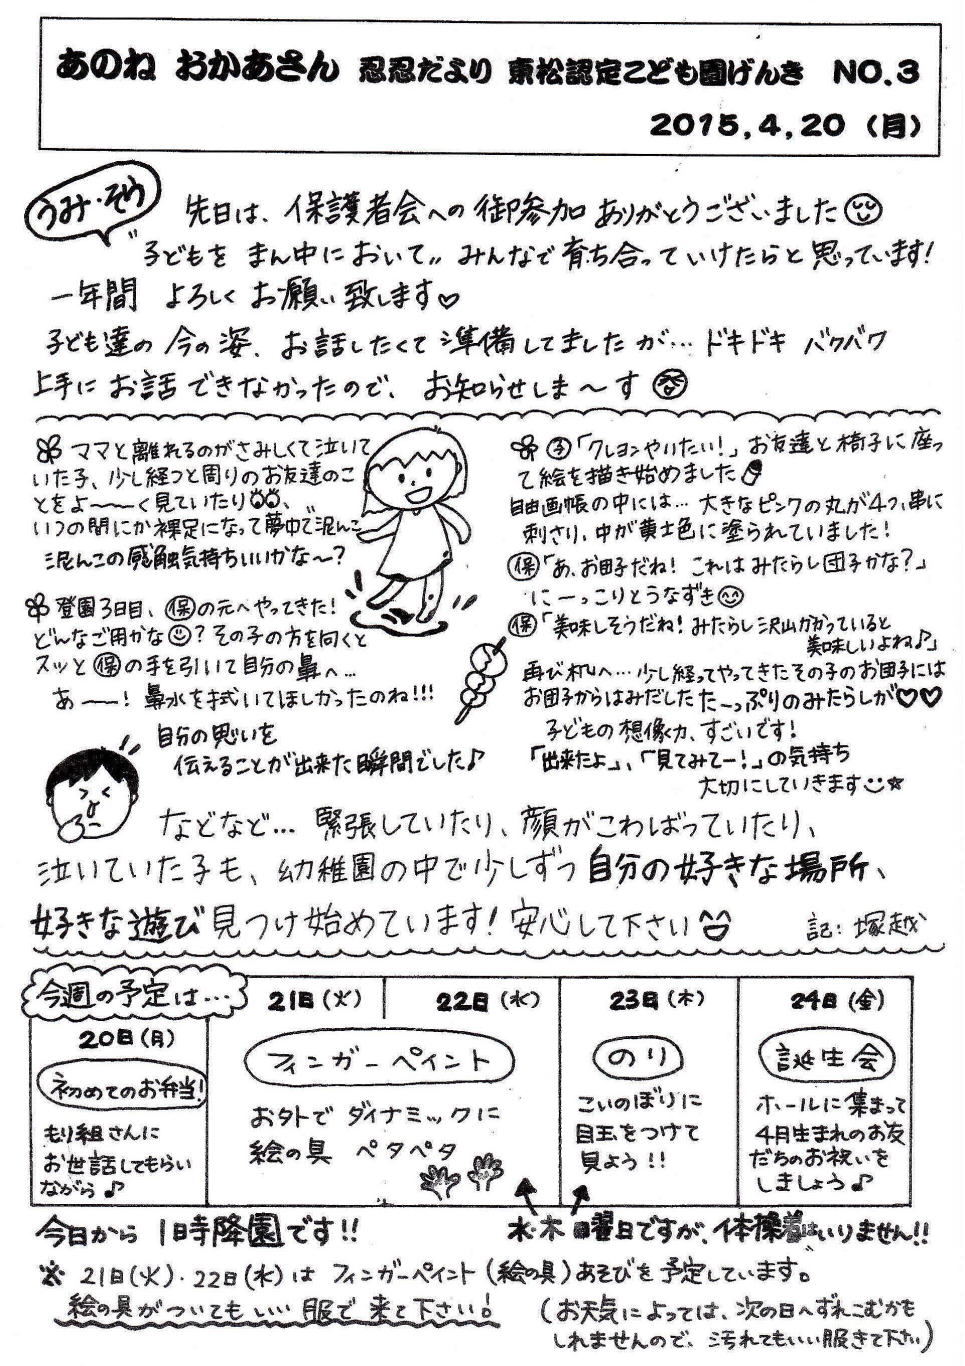 あのね おかあさん 忍忍だより 東松認定こども園げんき NO.3
2015.4.20（月）
うみ・そら
先日は、保護者会への御参加ありがとうございました
"子どもを まん中において" みんなで育ち合っていけたらと思っています!
一年間 よろしくお願い致します♡
子ども達の今の姿、お話したくて準備してましたが… ドキドキ バクバク
上手にお話できなかったので、お知らせしま〜す
ママと離れるのがさみしくて泣いて
いた子、少し経つと周りのお友達のこ
とをよ〜〜く見ていたり、
いつの間にか裸足になって夢中で泥んこ
泥んこの感触気持ちいいかな〜?
登園3日目、保の元へやってきた!
どんなご用かな? その子の方を向くと
スッと保の手を引いて自分の鼻へ…
あ〜〜! 鼻水を拭いてほしかったのね!!!
自分の思いを
伝えることが出来た瞬間でした♪
子「クレヨンやりたい!」お友達と椅子に座っ
て絵を描き始めました
自由画帳の中には… 大きなピンクの丸が4つ、串に
刺さり、中が黄土色に塗られていました!
保「あ、お団子だね! これはみたらし団子かな?」
にーっこりとうなずき
保「美味しそうだね! みたらし沢山かかっていると
美味しいよね♪」
再び机へ… 少し経ってやってきたその子のお団子には
お団子からはみだした たーっぷりのみたらしが♡♡
子どもの想像力、すごいです!
「出来たよ」、「見てみてー!」の気持ち
大切にしていきます☆
などなど… 緊張していたり、顔がこわばっていたり、
泣いていた子も、幼稚園の中で少しずつ自分の好きな場所、
好きな遊び見つけ始めています! 安心して下さい
記: 塚越
今週の予定は…
20日(月)
初めてのお弁当!
もり組さんに
お世話してもらい
ながら♪
21日(火) 22日(水)
フィンガーペイント
お外で ダイナミックに
絵の具 ペタペタ
23日(木)
のり
こいのぼりに
目玉をつけて
見よう!!
24日(金)
誕生会
ホールに集まって
4月生まれのお友
だちのお祝いを
しましょう♪
今日から 1時降園です!!
水・木曜日ですが、体操着はいりません!!
※ 21日(火)・22日(水)は フィンガーペイント(絵の具)あそびを予定しています。
絵の具がついてもいい服で来て下さい!
(お天気によっては、次の日へずれこむかも
しれませんので、汚れてもいい服きて下さい)